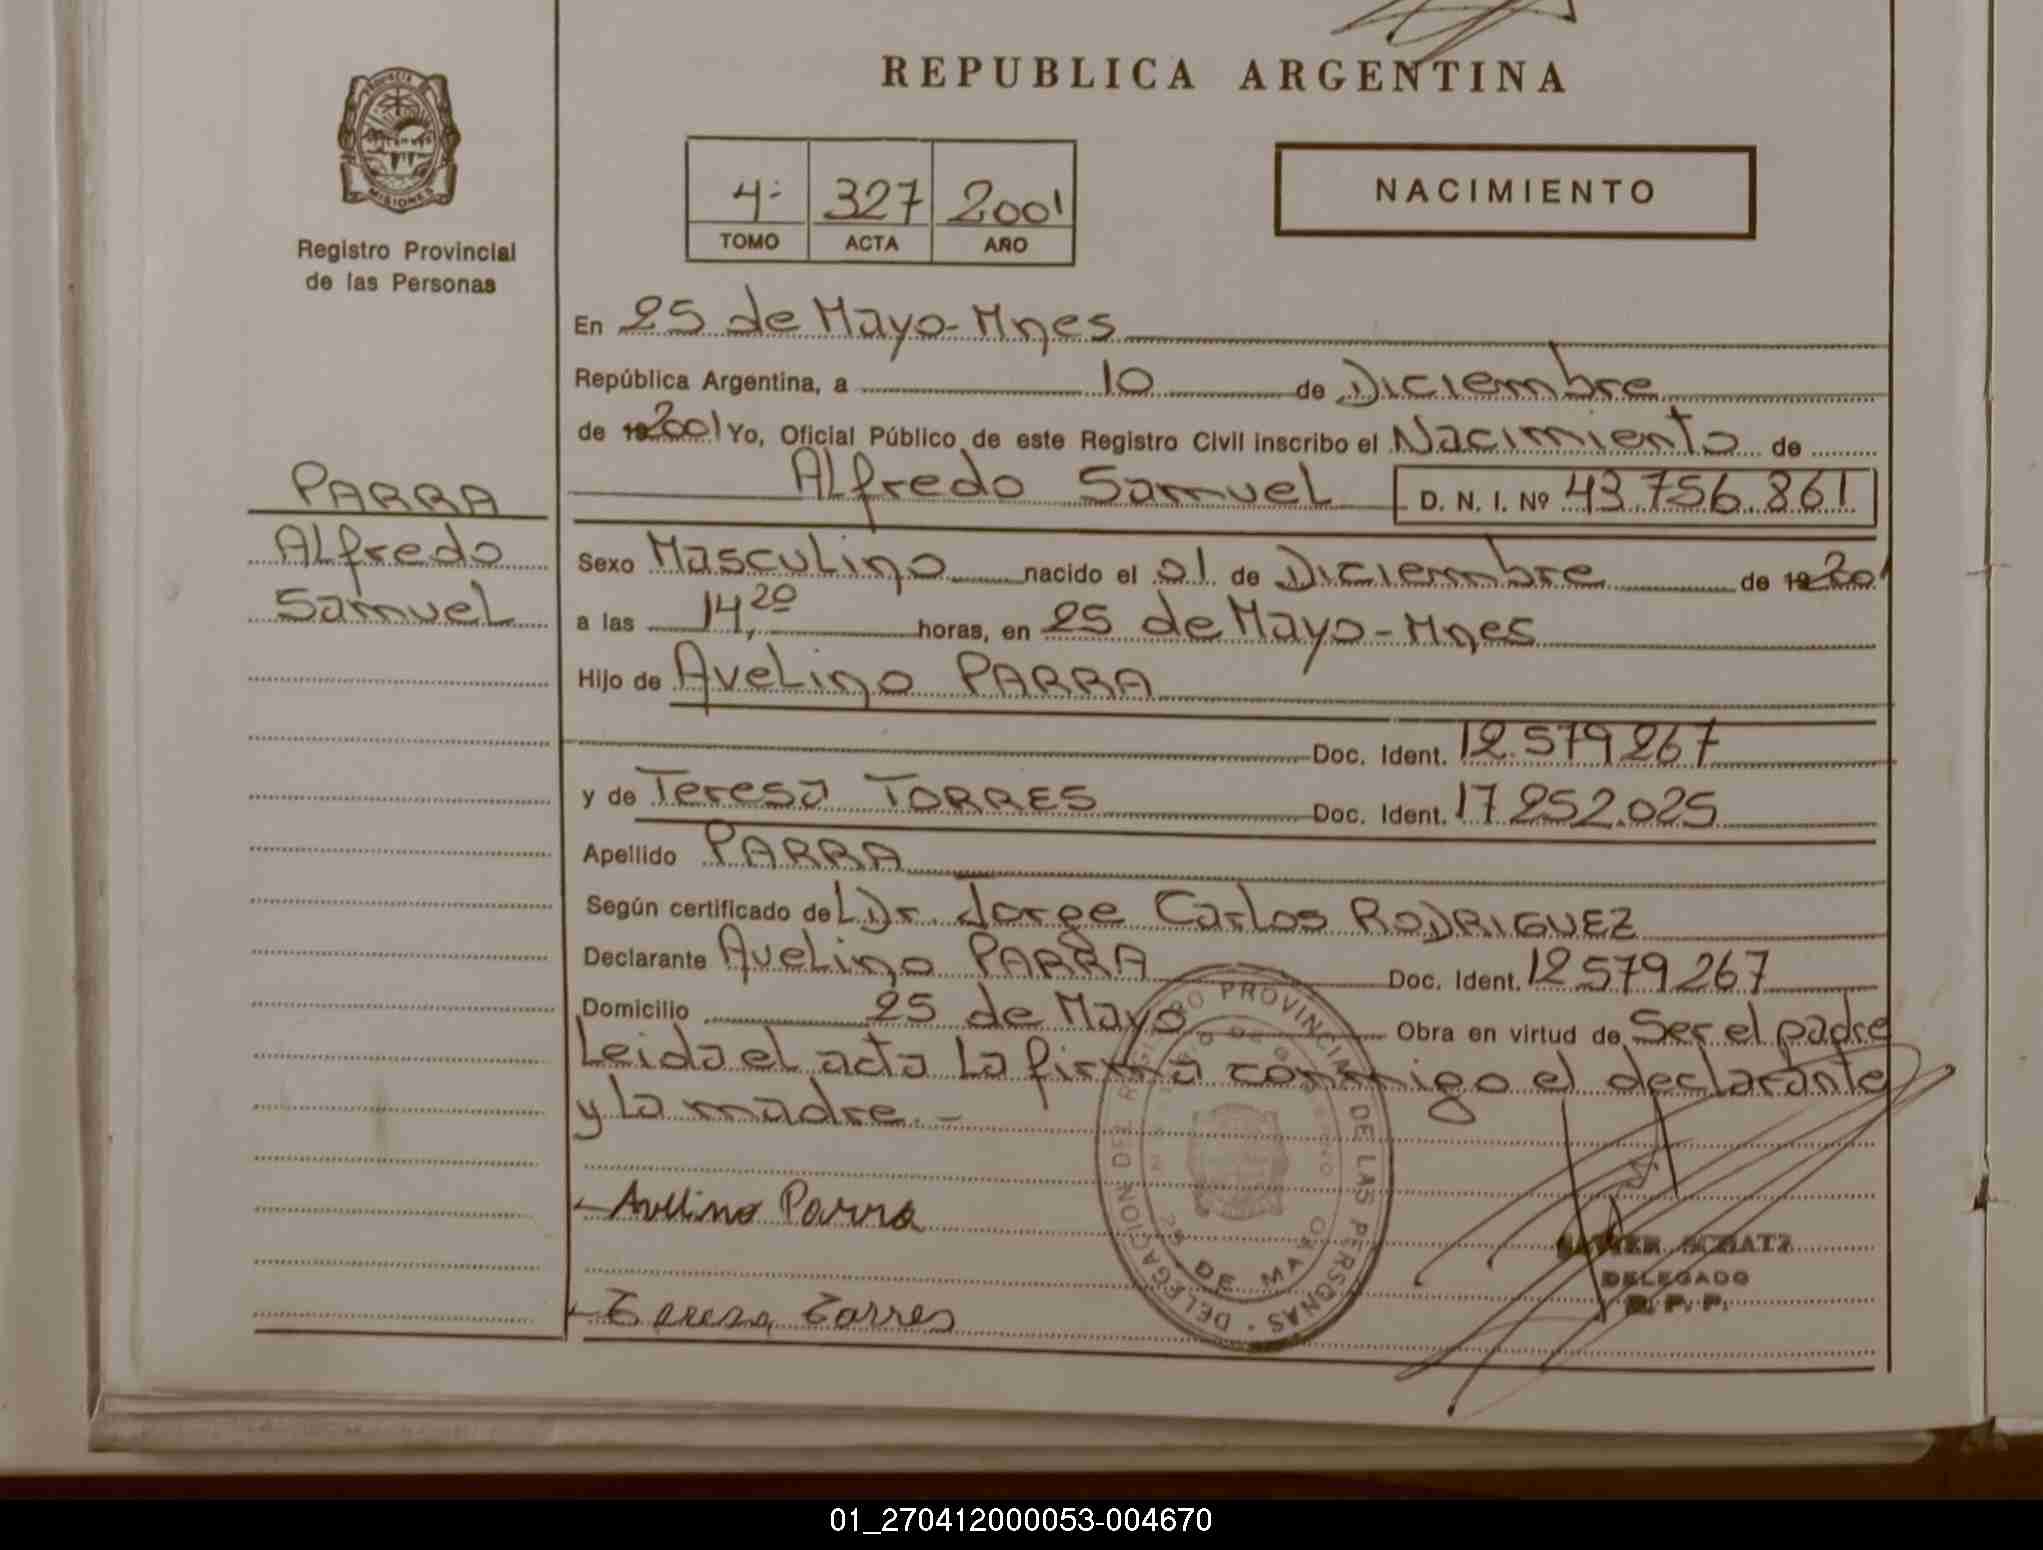 REPUBLICA ARGENTINA
PROVINCIA DE
MISIONES
Registro Provincial
de las Personas
4º 327 2001
TOMO ACTA AÑO
NACIMIENTO
PARRA
Alfredo
Samuel
En 25 de Mayo-Mnes
República Argentina, a 10 de Diciembre
de 192001 Yo, Oficial Público de este Registro Civil inscribo el Nacimiento de
Alfredo Samuel D. N. I. Nº 43.756.861
Sexo Masculino nacido el 01 de Diciembre de 192001
a las 14,20 horas, en 25 de Mayo-Mnes
Hijo de Avelino PARRA
Doc. Ident. 12.579.267
y de Teresa TORRES Doc. Ident. 17.252.025
Apellido PARRA
Según certificado del Dr. Jorge Carlos RODRIGUEZ
Declarante Avelino PARRA Doc. Ident. 12579267
Domicilio 25 de Mayo Obra en virtud de Ser el padre
Leida el acta la firma conmigo el declarante
y la madre.-
Avelino Parra
Teresa Torres
REGISTRO PROVINCIAL DE LAS PERSONAS · DELEGACION
25 DE MAYO
SCHATZ
DELEGADO
R. P. P.
01_270412000053-004670